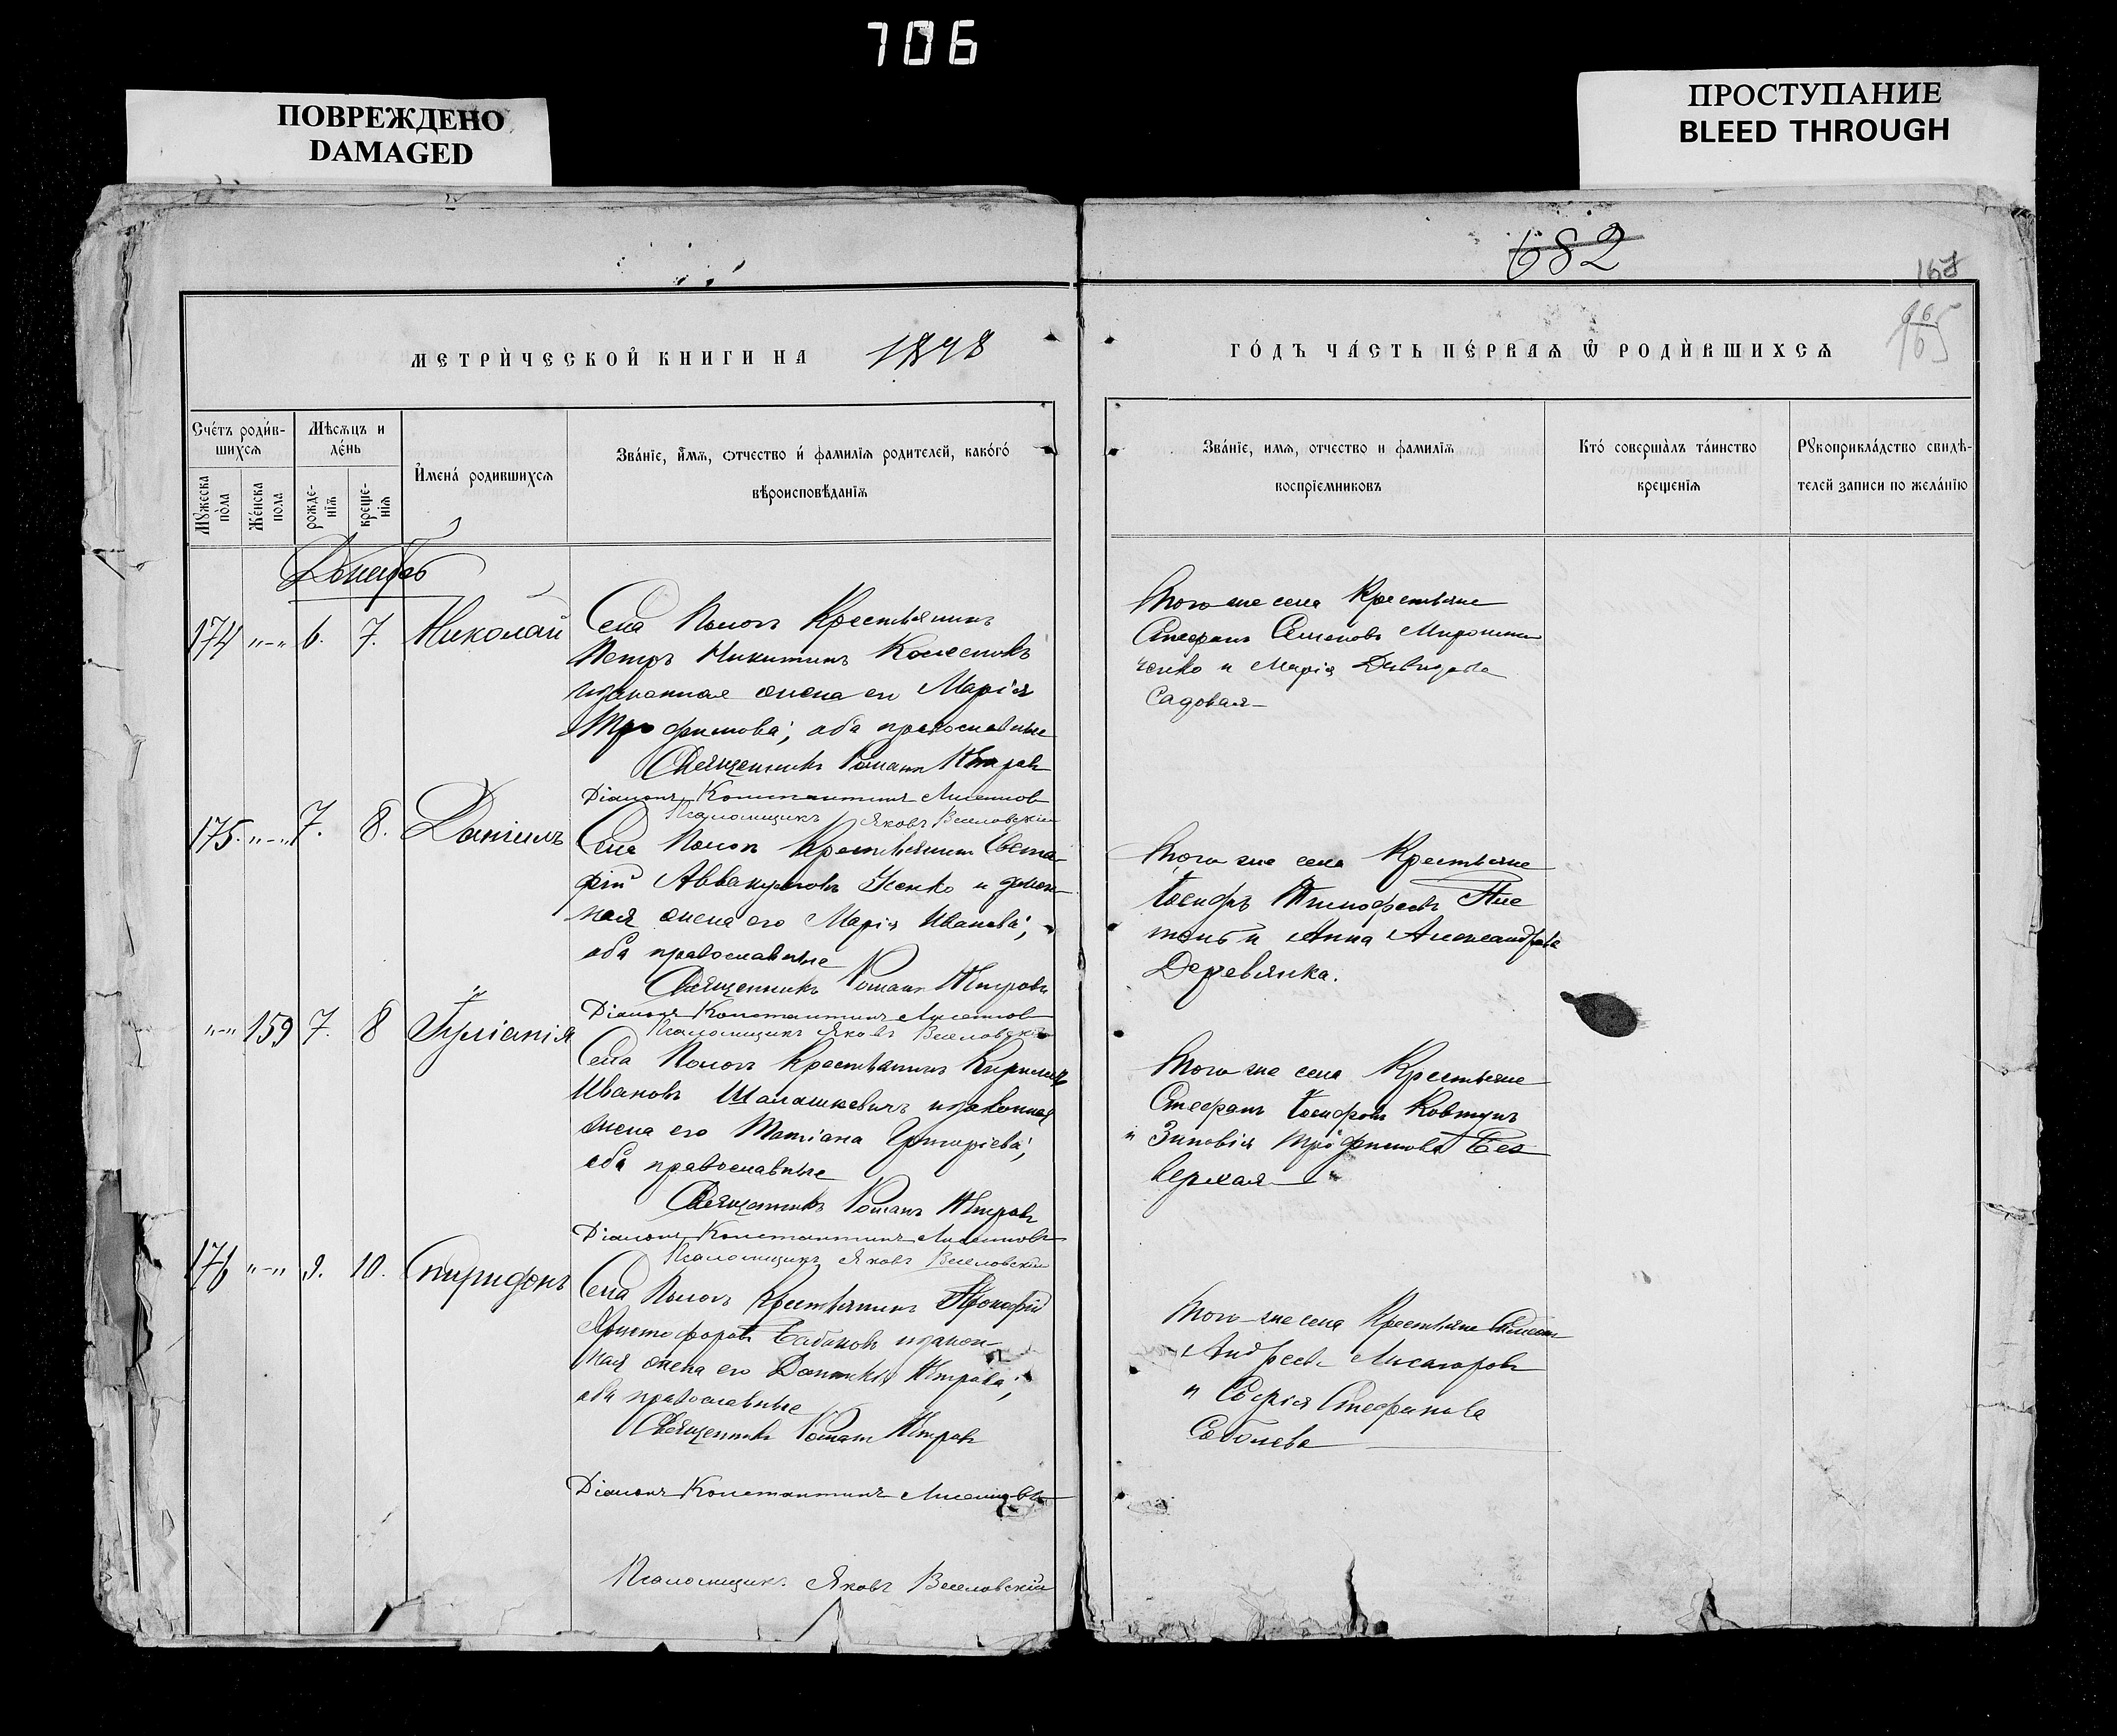 706
ПОВРЕЖДЕНО
DAMAGED
ПРОСТУПАНИЕ
BLEED THROUGH
682
167
МЕТРИ́ЧЕСКОЙ КНИГИ НА 1898
ГО́ДЪ ЧА́СТЬ ПЕ́РВАѦ Ѡ҆ РОДИ́ВШИХСѦ
Сче́тъ роди́в-
шихсѧ
Мѣ́сѧцъ и
де́нь
И҆мена́ родившихсѧ
Зва́нїе, и҆́мѧ, ѻтчество и҆ фамилїѧ родителей, како́гѡ
вѣроисповѣ́данїѧ
Мꙋжеска
по́ла
Же́нска
пола
рожде-
нїѧ
креще-
нїѧ
Зва́нїе, имѧ, отчество и фамилїѧ
воспрїемниковъ
Кто́ соверша́лъ та́инство
крещенїѧ
Рꙋкоприкла́дство свидѣ-
телей записи по жела́нїю
Декабрь
174 „-„ 6. 7. Николай
Села Крестьянинъ
Петръ Никитинъ
изаконная жена его Марія
Трофимова; оба православные
Священникъ Романъ Петровъ
Діаконъ Константинъ
Псаломщикъ Яковъ Веселовскій
Того же села Крестьяне
Стефанъ Семеновъ Мирошни
ченко и Марія Давидова
Садовая
175. „-„ 7. 8. Даніилъ
Села Крестьянинъ Евста-
фій Аввакумовъ Усенко и закон-
ная жена его Марія Иванова;
оба православные
Священникъ Романъ Петровъ
Діаконъ Константинъ
Псаломщикъ Яковъ Веселовскій
Того же села Крестьяне
Іосифъ Тимофеевъ
и Анна Александрова
Деревянка.
„-„ 159 7. 8 Іуліанія
Села Крестьянинъ Кириллъ
Ивановъ Шаламкевичъ изаконная
жена его Татіана Григоріева;
оба православные
Священникъ Романъ Петровъ
Діаконъ Константинъ
Псаломщикъ Яковъ Веселовскій
Того же села Крестьяне
Стефанъ Іосифовъ Ковтунъ
и Зиновія Трофимова Без
верхая
176 „-„ 9. 10. Спиридонъ
Села Крестьянинъ Прокофій
Христофоровъ изакон-
ная жена его Петрова;
оба православные
Священникъ Романъ Петровъ
Діаконъ Константинъ
Псаломщикъ Яковъ Веселовскій
Того же села Крестьяне
Андреевъ Лисогоровъ
и Софія Стефанова
Соболева